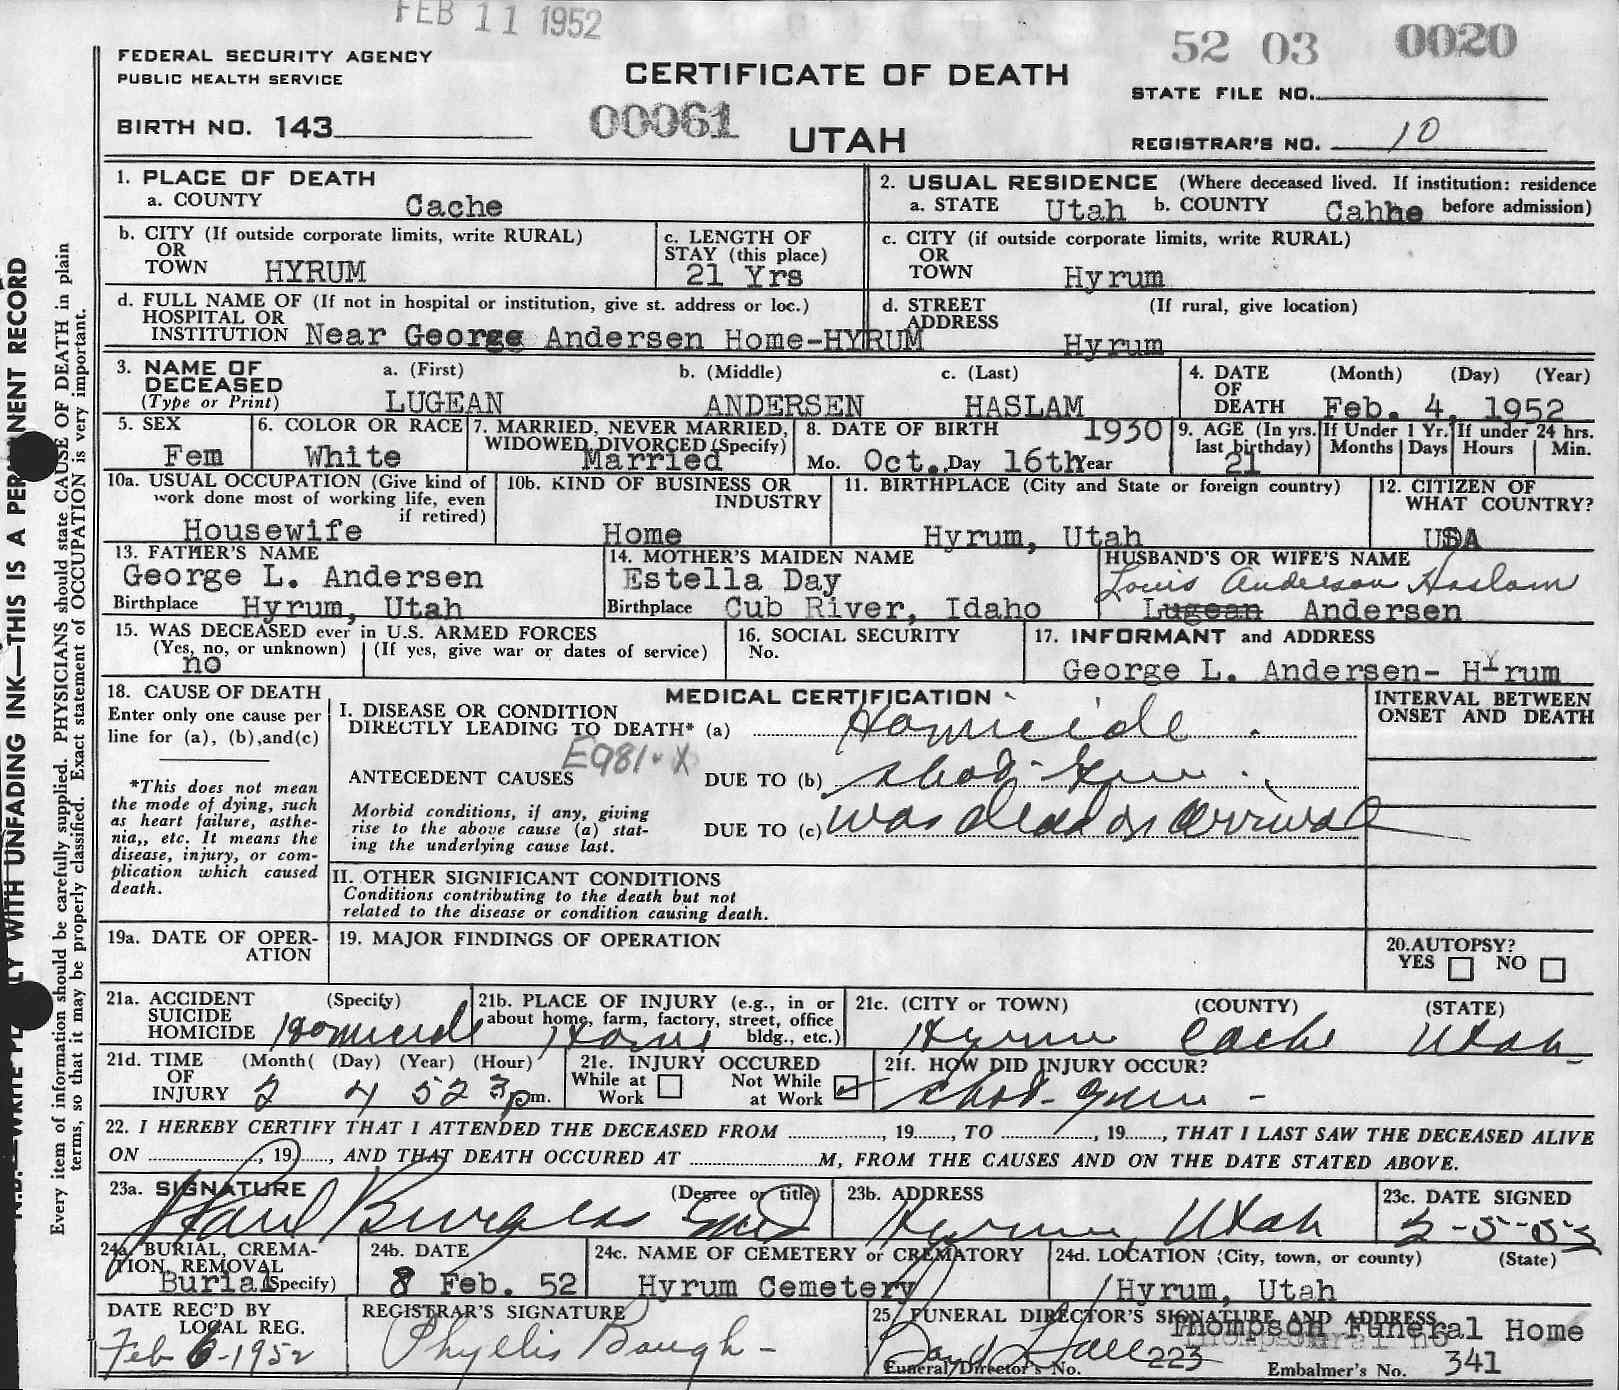 FEB 11 1952
52 03 0020
FEDERAL SECURITY AGENCY
PUBLIC HEALTH SERVICE
CERTIFICATE OF DEATH
STATE FILE NO.
BIRTH NO. 143
00061
UTAH
REGISTRAR'S NO. 10
N.B.—WRITE PLAINLY WITH UNFADING INK—THIS IS A PERMANENT RECORD
Every item of information should be carefully supplied. PHYSICIANS should state CAUSE OF DEATH in plain
terms, so that it may be properly classified. Exact statement of OCCUPATION is very important.
1. PLACE OF DEATH
a. COUNTY Cache
2. USUAL RESIDENCE (Where deceased lived. If institution: residence
a. STATE Utah b. COUNTY Cahhe before admission)
b. CITY (If outside corporate limits, write RURAL)
OR
TOWN HYRUM
c. LENGTH OF
STAY (this place)
21 Yrs
c. CITY (if outside corporate limits, write RURAL)
OR
TOWN Hyrum
d. FULL NAME OF (If not in hospital or institution, give st. address or loc.)
HOSPITAL OR
INSTITUTION Near George Andersen Home-HYRUM
d. STREET (If rural, give location)
ADDRESS
Hyrum
3. NAME OF a. (First) b. (Middle) c. (Last)
DECEASED
(Type or Print) LUGEAN ANDERSEN HASLAM
4. DATE (Month) (Day) (Year)
OF
DEATH Feb. 4, 1952
5. SEX
Fem
6. COLOR OR RACE
White
7. MARRIED, NEVER MARRIED,
WIDOWED, DIVORCED (Specify)
Married
8. DATE OF BIRTH 1930
Mo. Oct. Day 16th Year
9. AGE (In yrs. last birthday)
21
If Under 1 Yr. Months Days
If under 24 hrs. Hours Min.
10a. USUAL OCCUPATION (Give kind of
work done most of working life, even
if retired)
Housewife
10b. KIND OF BUSINESS OR
INDUSTRY
Home
11. BIRTHPLACE (City and State or foreign country)
Hyrum, Utah
12. CITIZEN OF
WHAT COUNTRY?
USA
13. FATHER'S NAME
George L. Andersen
Birthplace Hyrum, Utah
14. MOTHER'S MAIDEN NAME
Estella Day
Birthplace Cub River, Idaho
HUSBAND'S OR WIFE'S NAME
Louis Anderson Haslam
Lugean Andersen
15. WAS DECEASED ever in U.S. ARMED FORCES
(Yes, no, or unknown) (If yes, give war or dates of service)
no
16. SOCIAL SECURITY
No.
17. INFORMANT and ADDRESS
George L. Andersen- Hyrum
18. CAUSE OF DEATH
Enter only one cause per
line for (a), (b),and(c)
*This does not mean
the mode of dying, such
as heart failure, asthe-
nia,, etc. It means the
disease, injury, or com-
plication which caused
death.
MEDICAL CERTIFICATION
I. DISEASE OR CONDITION
DIRECTLY LEADING TO DEATH* (a) Homicide
E981.X
ANTECEDENT CAUSES DUE TO (b) shot-gun
Morbid conditions, if any, giving
rise to the above cause (a) stat-
ing the underlying cause last.
DUE TO (c) was dead on arrival
INTERVAL BETWEEN
ONSET AND DEATH
II. OTHER SIGNIFICANT CONDITIONS
Conditions contributing to the death but not
related to the disease or condition causing death.
19a. DATE OF OPER-
ATION
19. MAJOR FINDINGS OF OPERATION
20.AUTOPSY?
YES NO
21a. ACCIDENT (Specify)
SUICIDE
HOMICIDE Homicide
21b. PLACE OF INJURY (e.g., in or
about home, farm, factory, street, office
bldg., etc.)
Home
21c. (CITY or TOWN) (COUNTY) (STATE)
Hyrum Cache Utah
21d. TIME (Month( (Day) (Year) (Hour)
OF
INJURY 2 4 52 3 pm.
21e. INJURY OCCURED
While at Work Not While at Work
21f. HOW DID INJURY OCCUR?
shot-gun -
22. I HEREBY CERTIFY THAT I ATTENDED THE DECEASED FROM , 19 , TO , 19 , THAT I LAST SAW THE DECEASED ALIVE
ON , 19 , AND THAT DEATH OCCURED AT M, FROM THE CAUSES AND ON THE DATE STATED ABOVE.
23a. SIGNATURE (Degree or title)
Burgess
23b. ADDRESS
Hyrum, Utah
23c. DATE SIGNED
24a. BURIAL, CREMA-
TION, REMOVAL
Burial (Specify)
24b. DATE
8 Feb. 52
24c. NAME OF CEMETERY or CREMATORY
Hyrum Cemetery
24d. LOCATION (City, town, or county) (State)
Hyrum, Utah
DATE REC'D BY
LOCAL REG.
Feb 6-1952
REGISTRAR'S SIGNATURE
Phyllis Baugh
25. FUNERAL DIRECTOR'S SIGNATURE AND ADDRESS
Thompson Funeral Home
Boyd Hall
Funeral Director's No. 223
Embalmer's No. 341